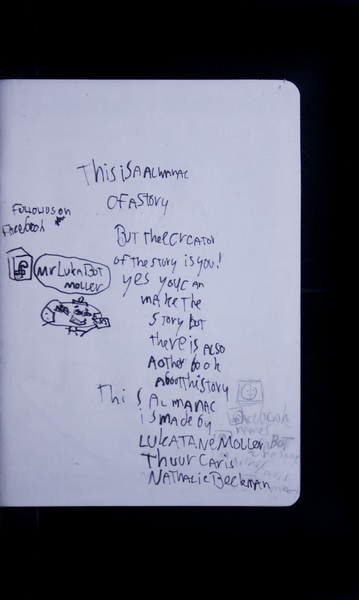 This is A ALMANAC
OF A STORY
FOLLOW US ON
FACEBOOK
BUT the CREATOR
of the STORY is you!
Mr Luka Bot
Moller
yes you CAN
MAKE THE
STORY BUT
there is ALSO
Aother book
About this story
This ALMANAC
is made by
LUKA TANE Moller BOT
Thuur Caris
NATHALIE Beekman